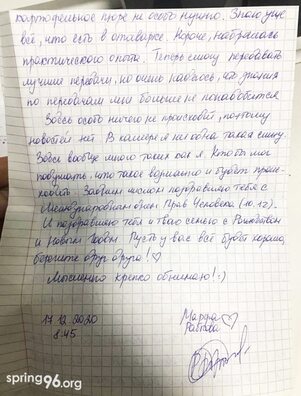 картофельное пюре не особо нужно. Знаю уже
всё, что есть в отоварке. Короче, набралась
практического опыта. Теперь смогу передавать
лучшие передачи, но очень надеюсь, что знания
по передачам мне больше не понадобятся.
Здесь особо ничего не происходит, поэтому
новостей нет. В камере я не одна такая сижу.
Здесь вообще много таких как я. Кто бы мог
подумать, что такое варианто и будет проис-
ходить. Задним числом поздравляю тебя с
Международным днем Прав Человека (10.12).
И поздравляю тебя и твою семью с Рождеством
и Новым Годом. Пусть у вас всё будет хорошо,
берегите друг друга! ♡
Мысленно крепко обнимаю! :)
17.12.2020
8.45
Марфа ♡
Рабкова
spring96.org